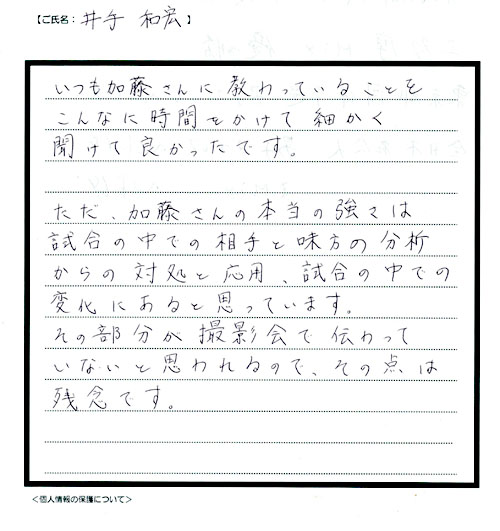 【ご氏名: 井手 和宏 】
いつも加藤さんに教わっていることを
こんなに時間をかけて細かく
聞けて良かったです。
ただ、加藤さんの本当の強さは
試合の中での相手と味方の分析
からの対処と応用、試合の中での
変化にあると思っています。
その部分が撮影会で伝わって
いないと思われるので、その点は
残念です。
<個人情報の保護について>